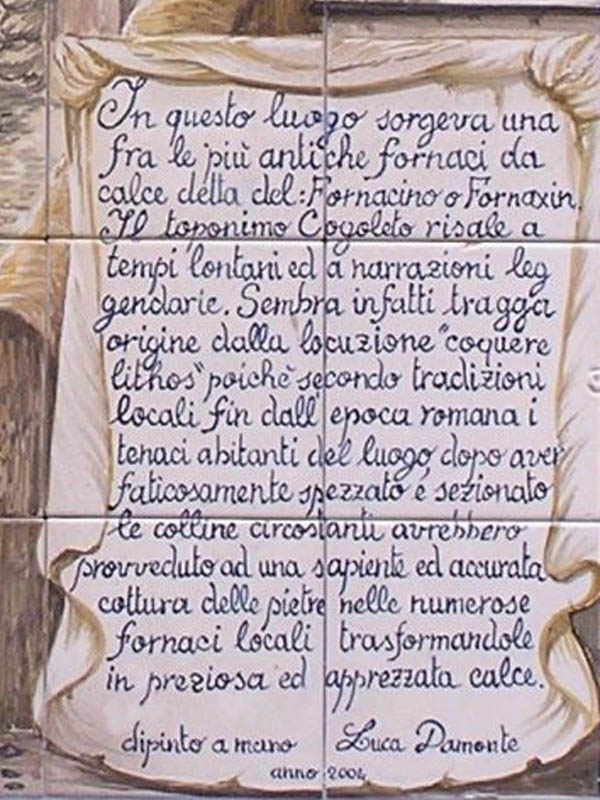 In questo luogo sorgeva una
fra le più antiche fornaci da
calce detta del: Fornacino o Fornaxin.
Il toponimo Cogoleto risale a
tempi lontani ed a narrazioni leg
gendarie. Sembra infatti tragga
origine dalla locuzione "coquere
lithos" poichè secondo tradizioni
locali fin dall'epoca romana i
tenaci abitanti del luogo, dopo aver
faticosamente spezzato e sezionato
le colline circostanti avrebbero
provveduto ad una sapiente ed accurata
cottura delle pietre nelle numerose
fornaci locali trasformandole
in preziosa ed apprezzata calce.
dipinto a mano Luca Damonte
anno 2004